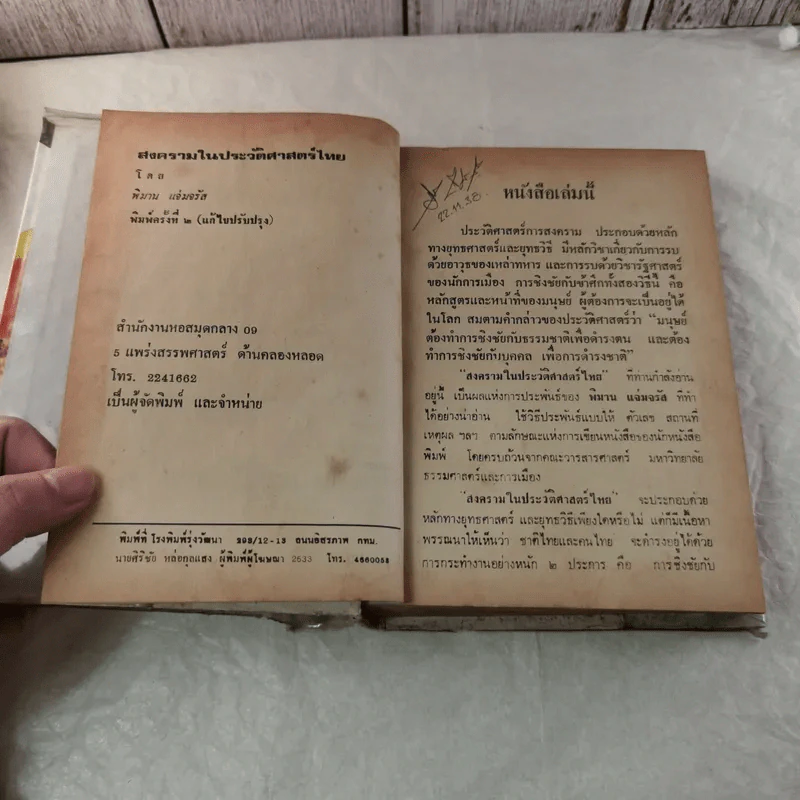 สงครามในประวัติศาสตร์ไทย
โดย
พิมาน แจ่มจรัส
พิมพ์ครั้งที่ ๒ (แก้ไขปรับปรุง)
สำนักงานหอสมุดกลาง 09
5 แพร่งสรรพศาสตร์ ด้านคลองหลอด
โทร. 2241662
เป็นผู้จัดพิมพ์ และจำหน่าย
พิมพ์ที่ โรงพิมพ์รุ่งวัฒนา 298/12-13 ถนนอิสรภาพ กทม.
นายศิริชัย หล่อกุลแสง ผู้พิมพ์ผู้โฆษณา 2533 โทร. 4660058
22.11.38
หนังสือเล่มนี้
ประวัติศาสตร์การสงคราม ประกอบด้วยหลัก
ทางยุทธศาสตร์และยุทธวิธี มีหลักวิชาเกี่ยวกับการรบ
ด้วยอาวุธของเหล่าทหาร และการรบด้วยวิชารัฐศาสตร์
ของนักการเมือง การชิงชัยกับข้าศึกทั้งสองวิธีนี้ คือ
หลักสูตรและหน้าที่ของมนุษย์ ผู้ต้องการจะเป็นอยู่ได้
ในโลก สมตามคำกล่าวของประวัติศาสตร์ว่า “มนุษย์
ต้องทำการชิงชัยกับธรรมชาติเพื่อดำรงตน และต้อง
ทำการชิงชัยกับบุคคล เพื่อการดำรงชาติ”
“สงครามในประวัติศาสตร์ไทย” ที่ท่านกำลังอ่าน
อยู่นี้ เป็นผลแห่งการประพันธ์ของ พิมาน แจ่มจรัส ที่ทำ
ได้อย่างน่าอ่าน ใช้วิธีประพันธ์แบบให้ ตัวเลข สถานที่
เหตุผล ฯลฯ ตามลักษณะแห่งการเขียนหนังสือของนักหนังสือ
พิมพ์ โดยครบถ้วนจากคณะวารสารศาสตร์ มหาวิทยาลัย
ธรรมศาสตร์และการเมือง
“สงครามในประวัติศาสตร์ไทย” จะประกอบด้วย
หลักทางยุทธศาสตร์ และยุทธวิธีเพียงใดหรือไม่ แต่ก็มีเนื้อหา
พรรณนาให้เห็นว่า ชาติไทยและคนไทย จะดำรงอยู่ได้ด้วย
การกระทำงานอย่างหนัก ๒ ประการ คือ การชิงชัยกับ